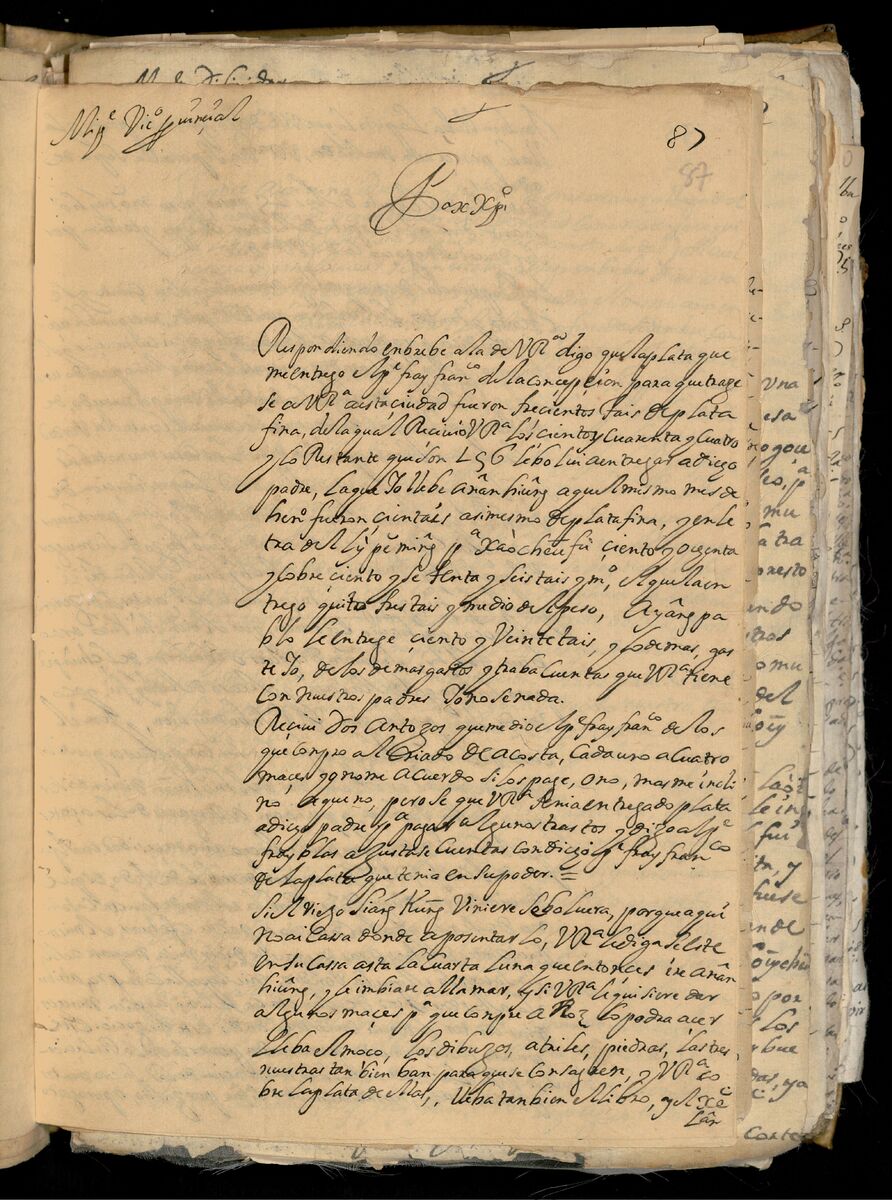 87
87
Pax Xpi
Respondiendo en brebe a la de VRª digo que la plata que
me entrego el pe fray franco de la concepcion para que traxe
se a VRª a esta ciudad fueron trecientos tais de plata
fina, de la qual Recivio VRª los ciento y cuarenta y cuatro
y lo Restante que son 156 le bolui a entregar a diego
padre, la que Jo llebe a nân hiûng aquel mismo mes de
henº fueron cien taìs asimesmo de plata fina, y en le
tra del pª Xaò cheu fù, ciento y ochenta
y cobre ciento y setenta y seis tais y mº, el que la en
trego quito tres tais y medio del peso, A yâng pa
blo le entrege ciento y veinte tais, y lo demas, gas
te Jo, de los demas gastos y traba cuentas que VRª tiene
con nuestros padres Jo no se nada.
Recivi dos antoxos que me dio el pe fray franco de los
que conpro al criado de acosta, cada uno a cuatro
maces y no me acuerdo si los page, o no, mas me incli
no a que no, pero se que VRª tenia entregado plata
a diego padre pª pagar algunos trastos y dixo al pe
fray blas ajustase cuentas con diego pe fray franco
de la plata que tenia en su poder. =
Si el viejo Siang Kung viniere se boluera, porque aqui
no ai cassa donde aposentarlo, VRª le diga se este
en su cassa asta la cuarta luna que entonces ire a nân
hiûng, y le imbiare a llamar, y si VRª le quisiere dar
algunos maces pª que conpre aRoz lo podra acer
lleba el moço, los dibuxos, atriles, piedras, las tres
nuestras tanbien ban para que se consagren, y VRª co
bre la plata de ellas, lleba tanbien el libro, y el Xĕ
lân